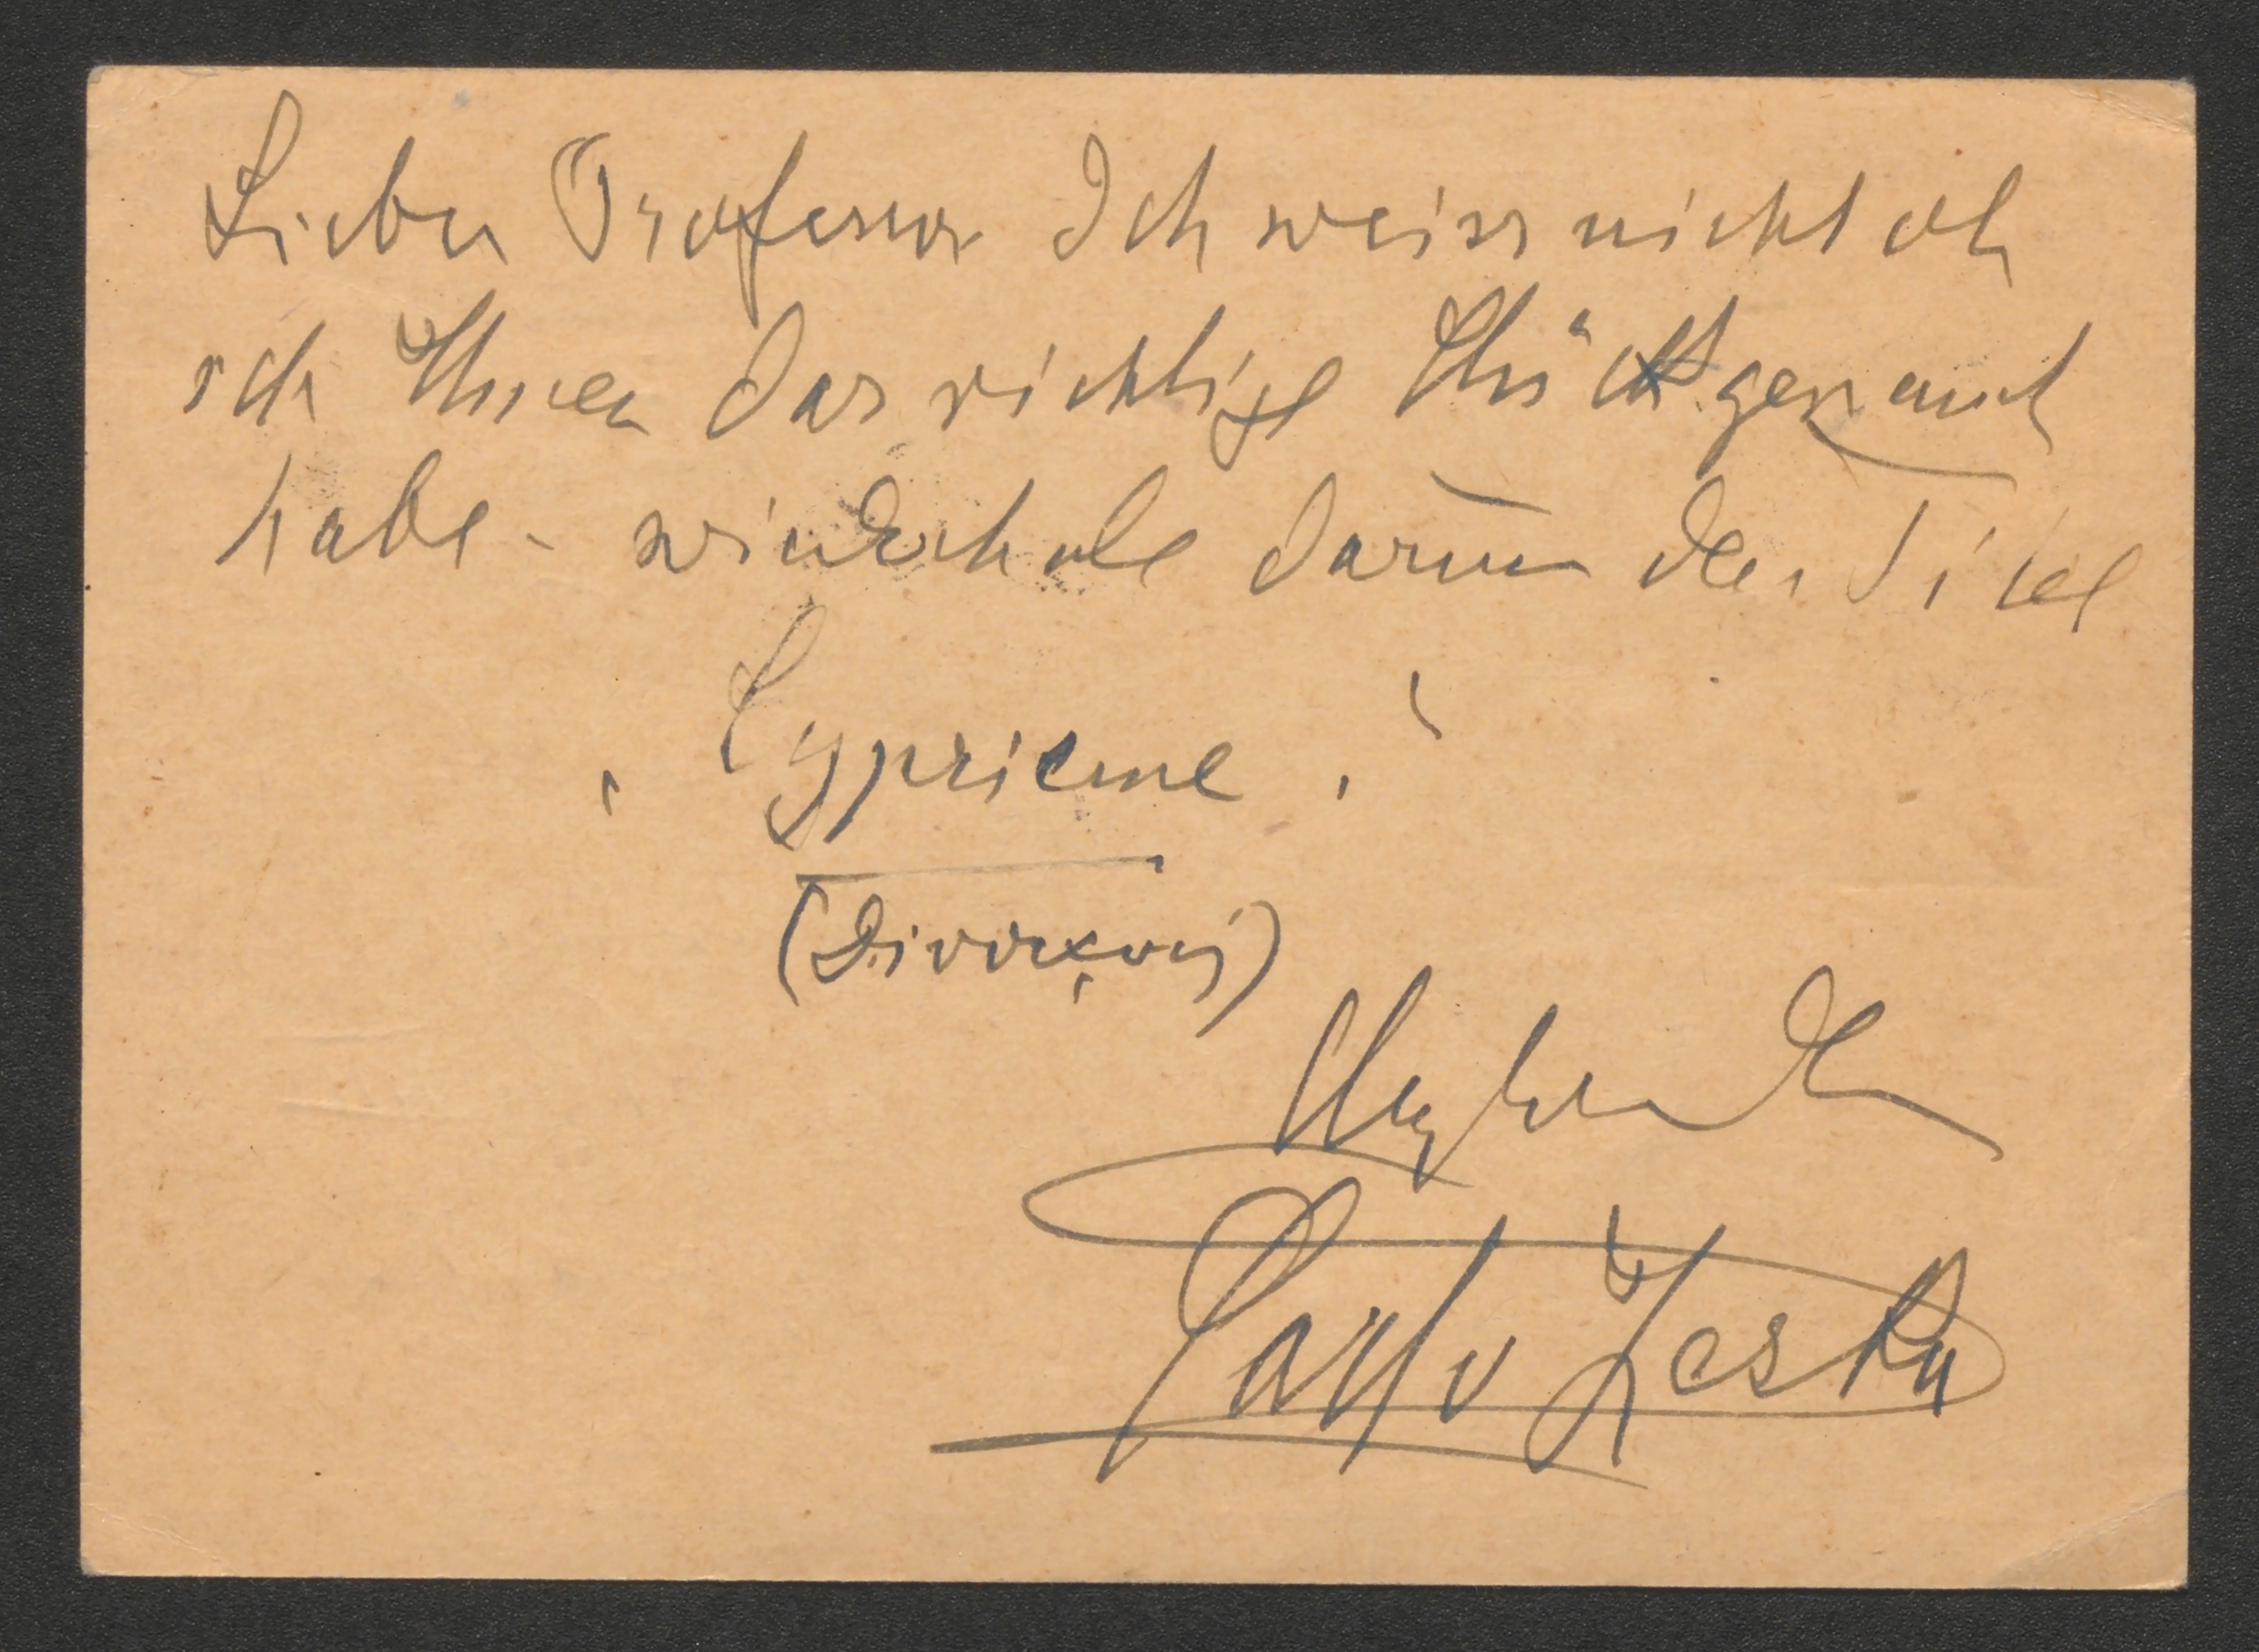 Lieber Professor Ich weiss nicht ob
ich Ihnen das richtige Stück genannt
habe - wiederhole darum den Titel
„Cyprienne."
(Divorçons)
Carl v Zeska